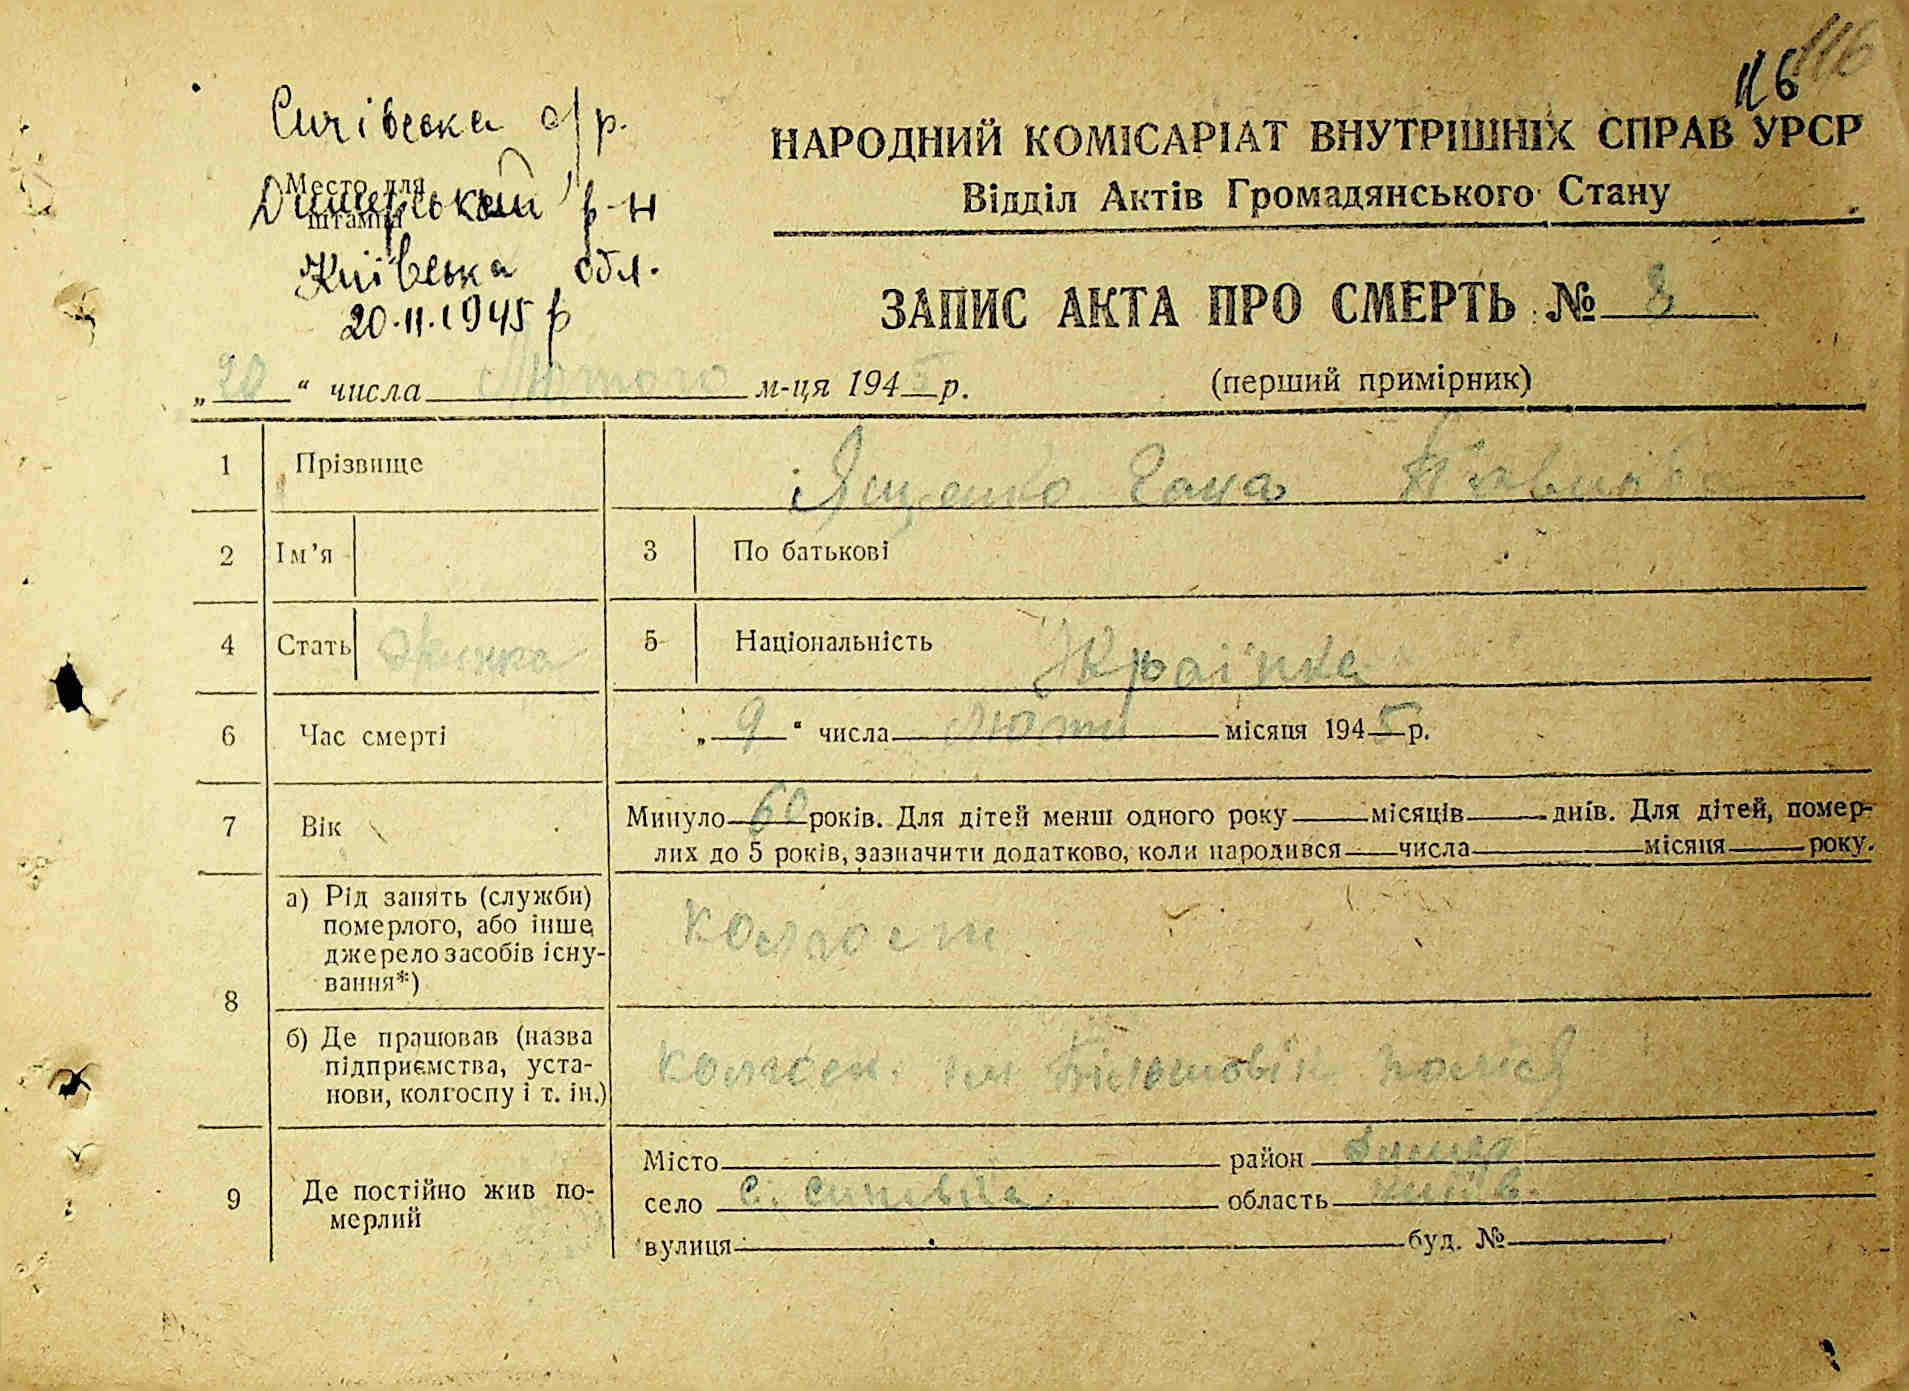 116
116
Сичівська с/р.
Место для
штампа
Димерський р-н
Київська обл.
20.II.1945 р
НАРОДНИЙ КОМІСАРІАТ ВНУТРІШНІХ СПРАВ УРСР
Відділ Актів Громадянського Стану
ЗАПИС АКТА ПРО СМЕРТЬ № 8
„20“ числа Лютого м-ця 1945 р.
(перший примірник)
1 Прізвище Ященко Гана Павлівна
2 Ім’я 3 По батькові
4 Стать Жінка 5 Національність Українка
6 Час смерті „9“ числа Люти місяця 1945 р.
7 Вік Минуло 60 років. Для дітей менш одного року місяців днів. Для дітей, помер-
лих до 5 років, зазначити додатково, коли народився числа місяця року.
8 а) Рід занять (служби)
померлого, або інше
джерело засобів існу-
вання*)
Колгосп
б) Де працював (назва
підприємства, уста-
нови, колгоспу і т. ін.)
Полісся
9 Де постійно жив по-
мерлий
Місто район Димер
село с. область Київ.
вулиця буд. №